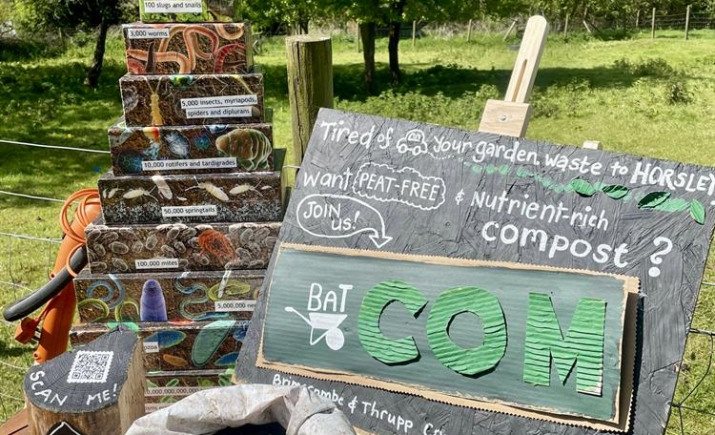 100 slugs and snails
3,000 worms
5,000 insects, myriapods,
spiders and diplurans
10,000 rotifers and tardigrades
50,000 springtails
100,000 mites
5,000,000
Tired of your garden waste to HORSLEY
want PEAT-FREE & nutrient-rich
JOIN us! compost?
BAT
COM
& Thrupp
SCAN ME!